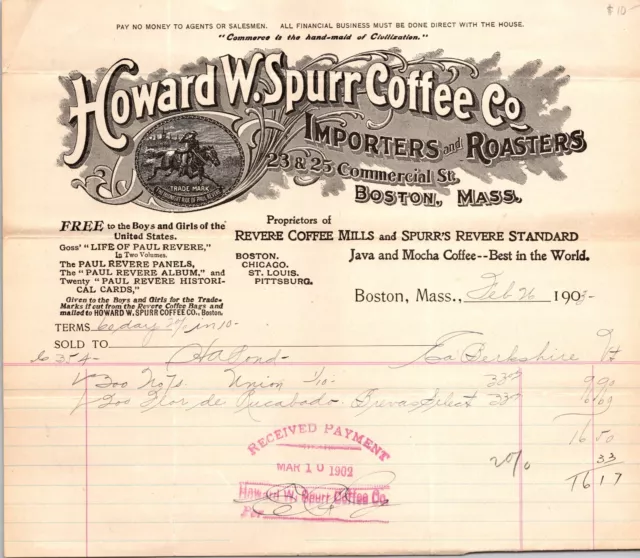 $10-
PAY NO MONEY TO AGENTS OR SALESMEN. ALL FINANCIAL BUSINESS MUST BE DONE DIRECT WITH THE HOUSE.
"Commerce is the hand-maid of Civilization."
Howard W. Spurr Coffee Co
IMPORTERS and ROASTERS
23 & 25 Commercial St.
BOSTON, MASS.
TRADE MARK
THE MIDNIGHT RIDE OF PAUL REVERE
FREE to the Boys and Girls of the
United States.
Goss' "LIFE OF PAUL REVERE,"
In Two Volumes.
The PAUL REVERE PANELS,
The "PAUL REVERE ALBUM," and
Twenty "PAUL REVERE HISTORI-
CAL CARDS,"
Given to the Boys and Girls for the Trade-
Marks if cut from the Revere Coffee Bags and
mailed to HOWARD W. SPURR COFFEE CO., Boston.
Proprietors of
REVERE COFFEE MILLS and SPURR'S REVERE STANDARD
BOSTON.
CHICAGO.
ST. LOUIS.
PITTSBURG.
Java and Mocha Coffee--Best in the World.
Boston, Mass., Feb 26 190
TERMS 60 day 2% in 10-
SOLD TO
354 Pond- Berkshire Vt
300 No 7s. Union 1/10- 33 9.90
200 Flor de Brevas Select 33 6 60
16 50
2% 33
16 17
RECEIVED PAYMENT
MAR 10 1902
Howard W. Spurr Coffee Co.
Per